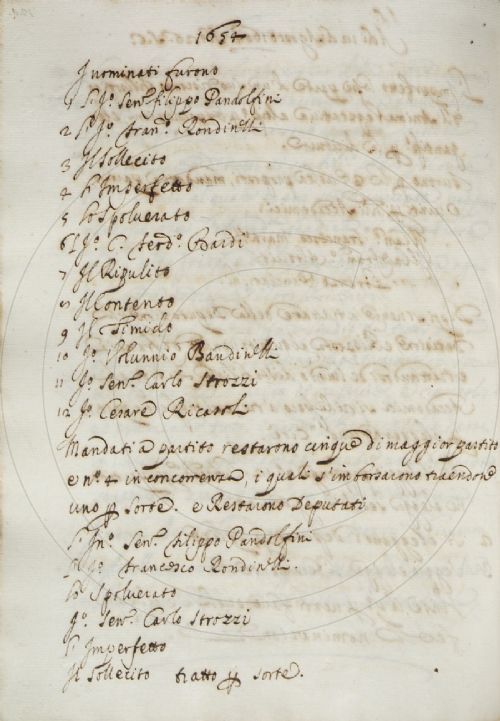 1654
I nominati furono
1 S.r J.o Sen.re filippo Pandolfini
2 S.r J.o fran.co Rondinelli
3 Il Sollecito
4 L'Imperfetto
5 Lo Spolverato
6 I J.o C. ferd.o Bardi
7 Il Ripulito
8 Il Contento
9 Il Timido
10 J.o Volunnio Bandinelli
11 J.o Sen.re Carlo Strozzi
12 J.o Cesare Ricasoli
Mandati a partito restarono cinque di maggior partito
e n.o 4 in concorrenza, i quali s'imborsarono traendone
uno p sorte. e Restarono Deputati
Sen.re filippo Pandolfini
J.o francesco Rondinelli.
Lo Spolverato
J.o Sen.re Carlo Strozzi
L'Imperfetto
Il Sollecito tratto p sorte.